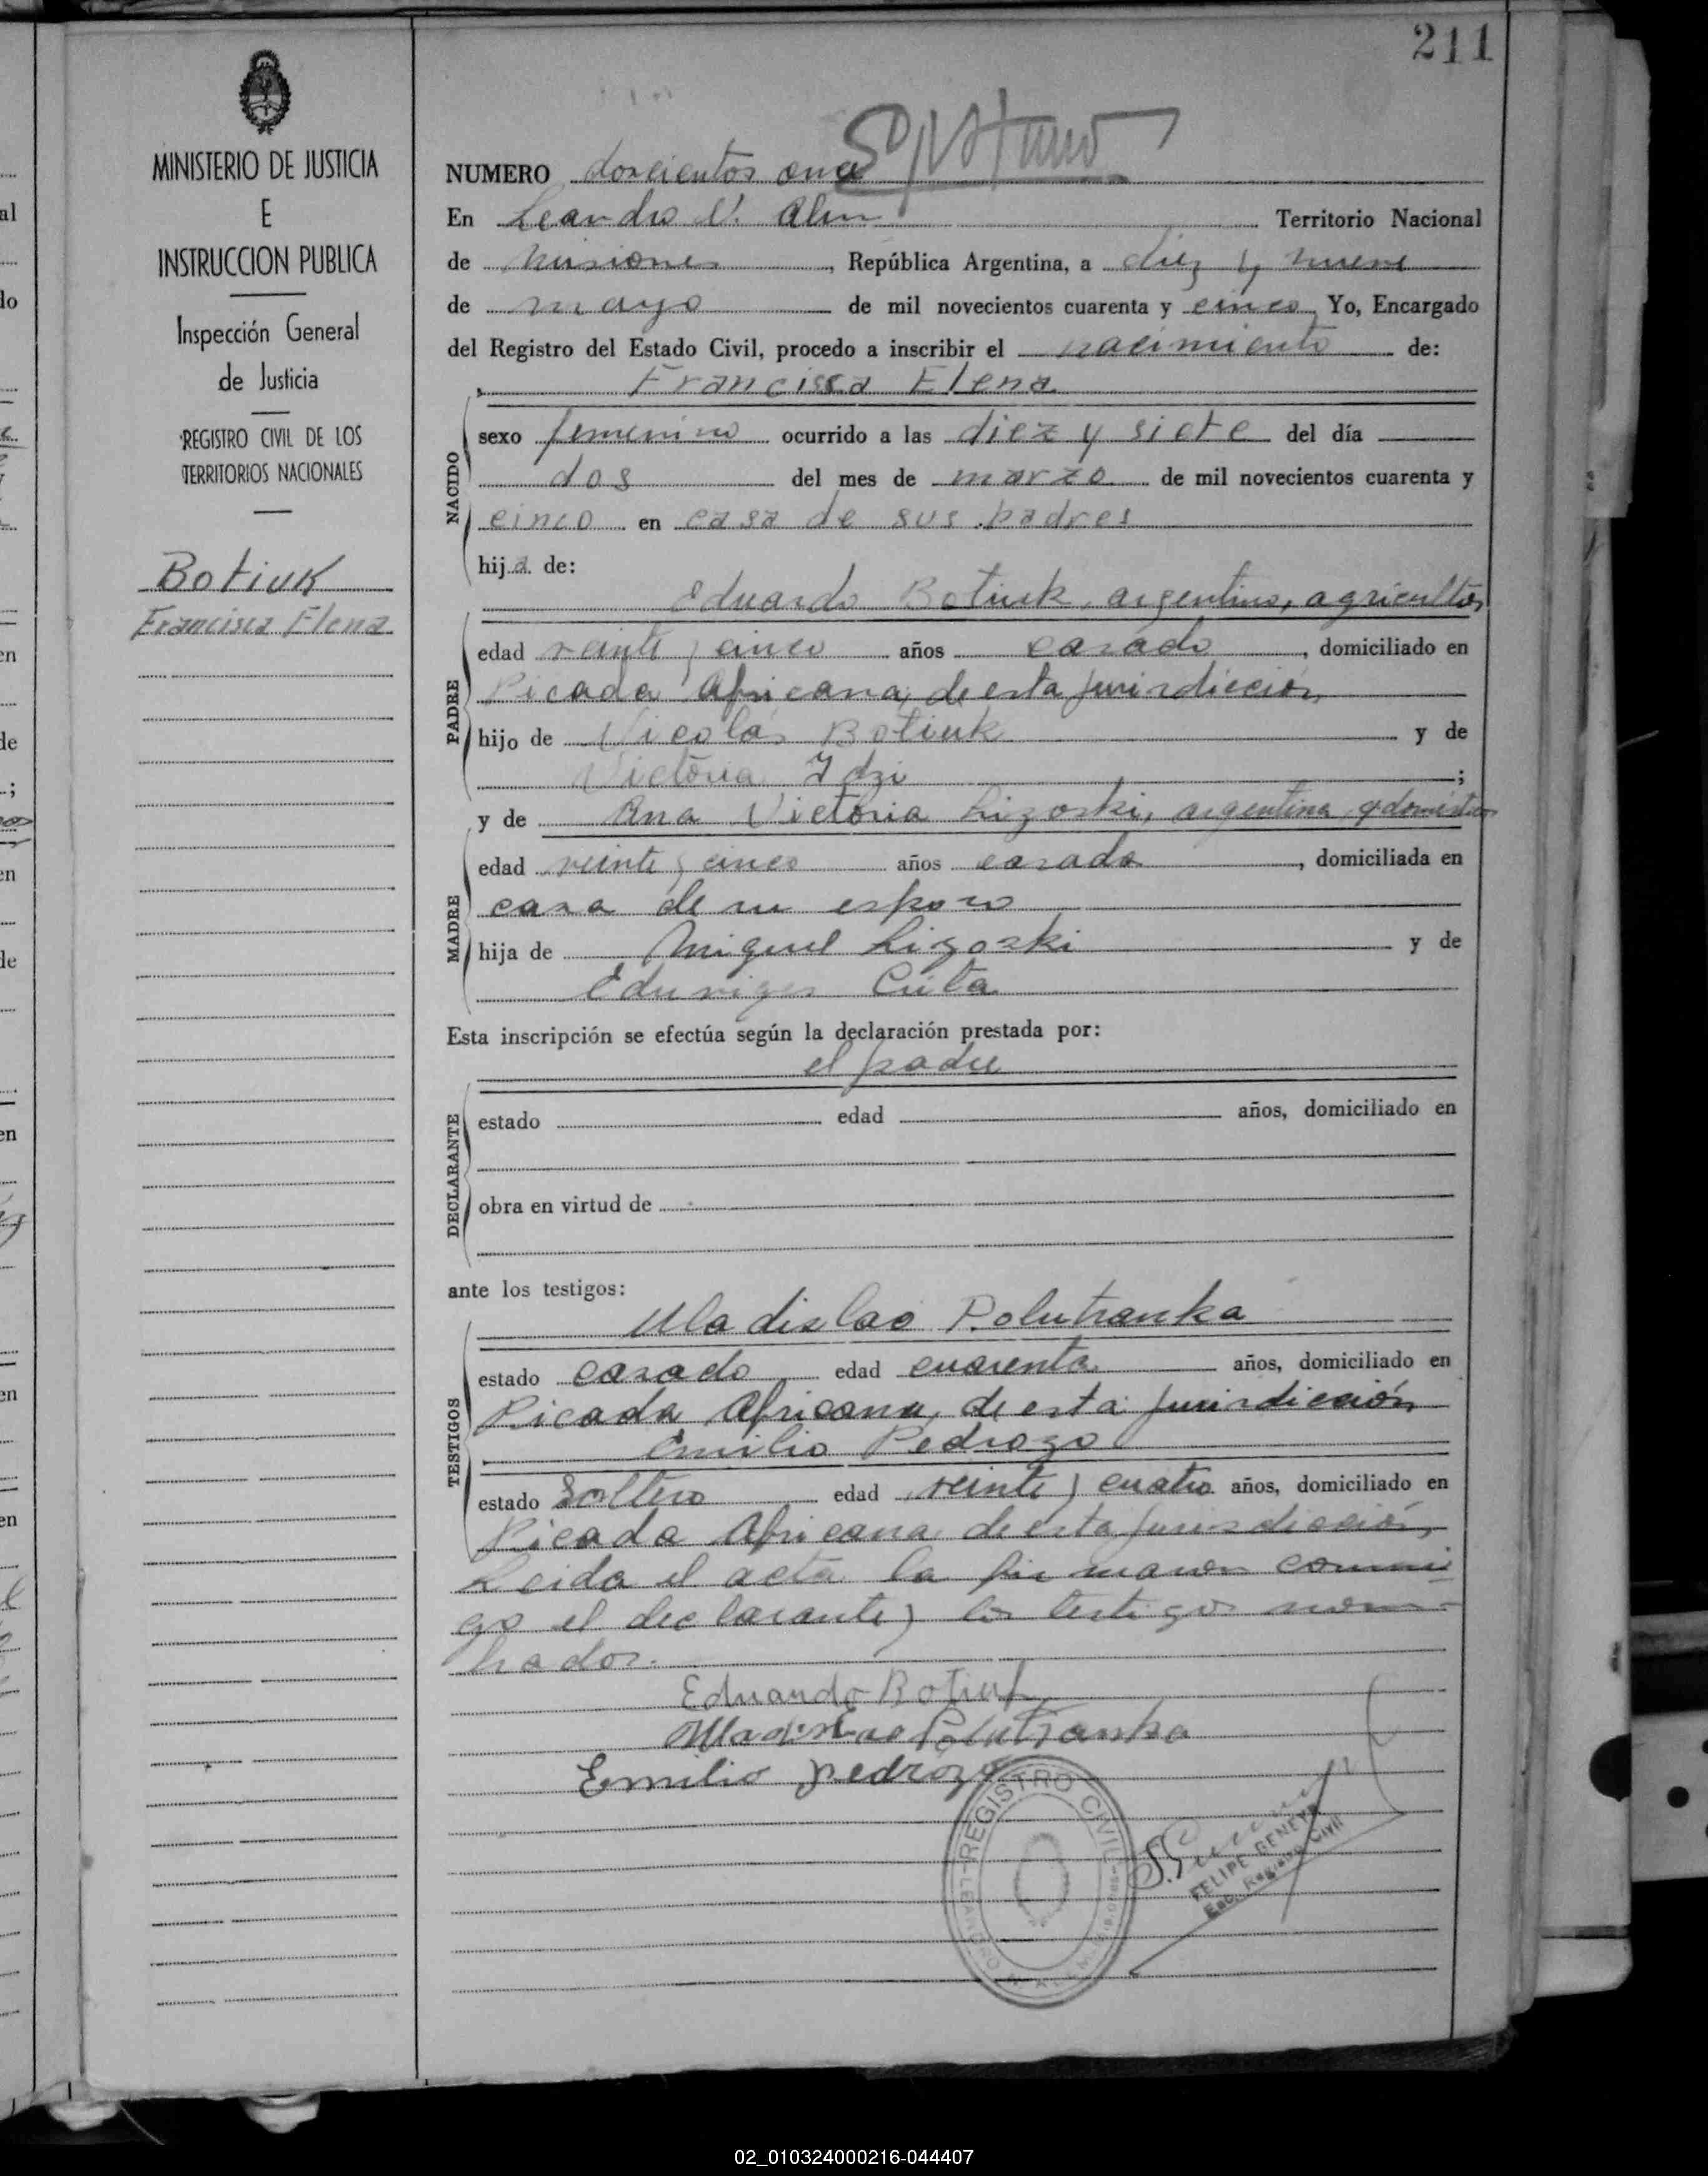 211
MINISTERIO DE JUSTICIA
E
INSTRUCCION PUBLICA
Inspección General
de Justicia
REGISTRO CIVIL DE LOS
TERRITORIOS NACIONALES
Botiuk
Francisca Elena
NUMERO doscientos once
En Leandro N. Alem Territorio Nacional
de Misiones, República Argentina, a diez y nueve
de mayo de mil novecientos cuarenta y cinco Yo, Encargado
del Registro del Estado Civil, procedo a inscribir el nacimiento de:
Francisca Elena
NACIDO
sexo femenino ocurrido a las diez y siete del día
dos del mes de marzo de mil novecientos cuarenta y
cinco en casa de sus padres
hija de:
Eduardo Botiuk, argentino, agricultor
PADRE
edad veinte y cinco años casado, domiciliado en
Picada Africana, de esta jurisdicción,
hijo de Nicolás Botiuk y de
Victoria Idzi;
y de Ana Victoria Lizoski, argentina, domestica
MADRE
edad veinte y cinco años casada, domiciliada en
casa de su esposo
hija de Miguel Lizoski y de
Eduviges
Esta inscripción se efectúa según la declaración prestada por:
el padre
DECLARANTE
estado edad años, domiciliado en
obra en virtud de
ante los testigos:
Uladislao Polutranka
TESTIGOS
estado casado edad cuarenta años, domiciliado en
Picada Africana, de esta jurisdicción
Emilio Pedrozo
estado Soltero edad veinte y cuatro años, domiciliado en
Picada Africana, de esta jurisdicción,
Leida el acta la firmaron conmi
go el declarante y los testigos nom-
brados.
Eduardo Botiuk
Uladislao Polutranka
Emilio pedrozo
REGISTRO CIVIL
LEANDRO N. ALEM
FELIPE GENEYR
Enc. Registro Civil
02_010324000216-044407